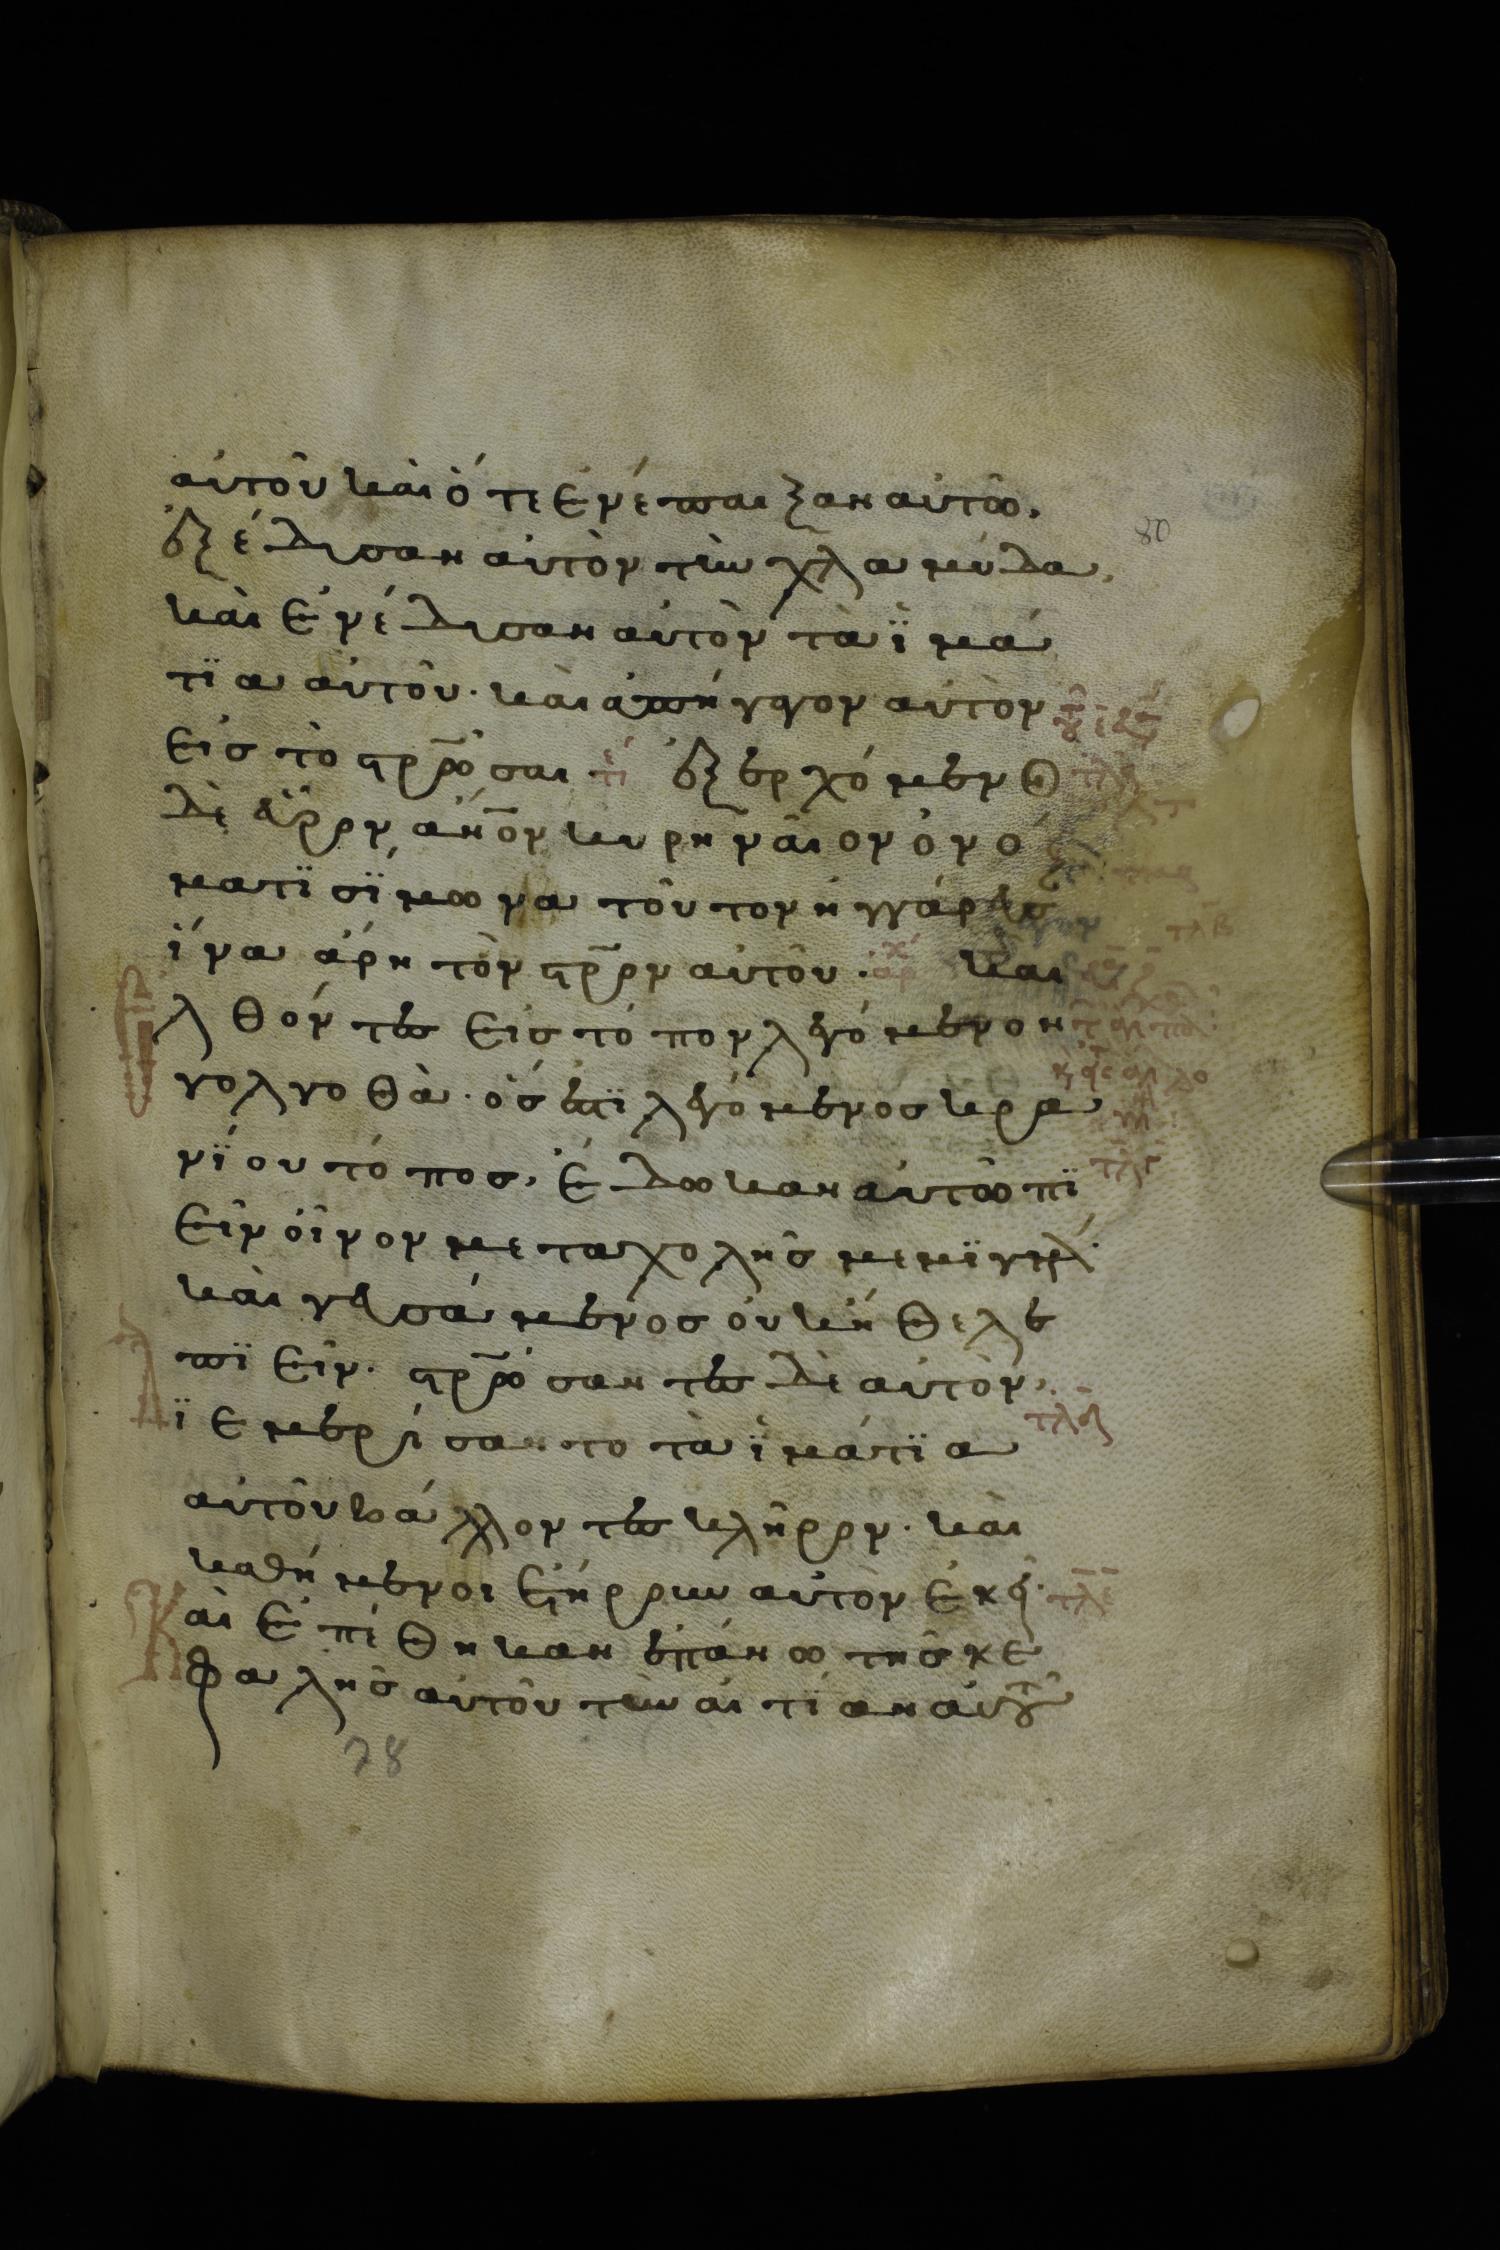 αὐτοῦ καὶ ὅτε ἐνέπαιξαν αὐτῶ.
80
ἐξέδυσαν αὐτὸν τὴν χλαμύδα,
καὶ ἐνέδυσαν αὐτὸν τὰ ϊμά
τϊα αὐτοῦ· καὶ ἀπήγαγον αὐτὸν
εἰς τὸ στρ̅ῶσαι ἐξερχόμενοι
δὲ εὗρον ἀν̅ον κυρηναῖον ὀνό
ματϊ σϊμωνα τοῦτον ἠγγάρευσ
ἵνα ἄρη τὸν στρ̅ον αὐτοῦ· καὶ
λθόντες εἰς τόπον λεγόμενον
γολγοθὰ· ὅς ἐστϊ λεγόμενος κρα
νϊου τόπος, ἔδωκαν αὐτῶ πϊ
εῖν οἶνον μετα χολῆς μεμϊγμέ·
καὶ γευσάμενος οὐκ ἤθελε
πϊεῖν· στρ̅ώσαντες δὲ αὐτὸν,
τλδ
ϊεμερίσαντο τὰ ἱμάτϊα
αὐτοῦ βάλλοντες κλῆρον· καὶ
καθήμενοι ἐτήρουν αὐτὸν ἐκεῖ·
τλε
Κ
αὶ ἐπέθηκαν ἐπάνω τῆς κε
φαλῆς αὐτοῦ τὴν αἰτίαν αὐτοῦ
78